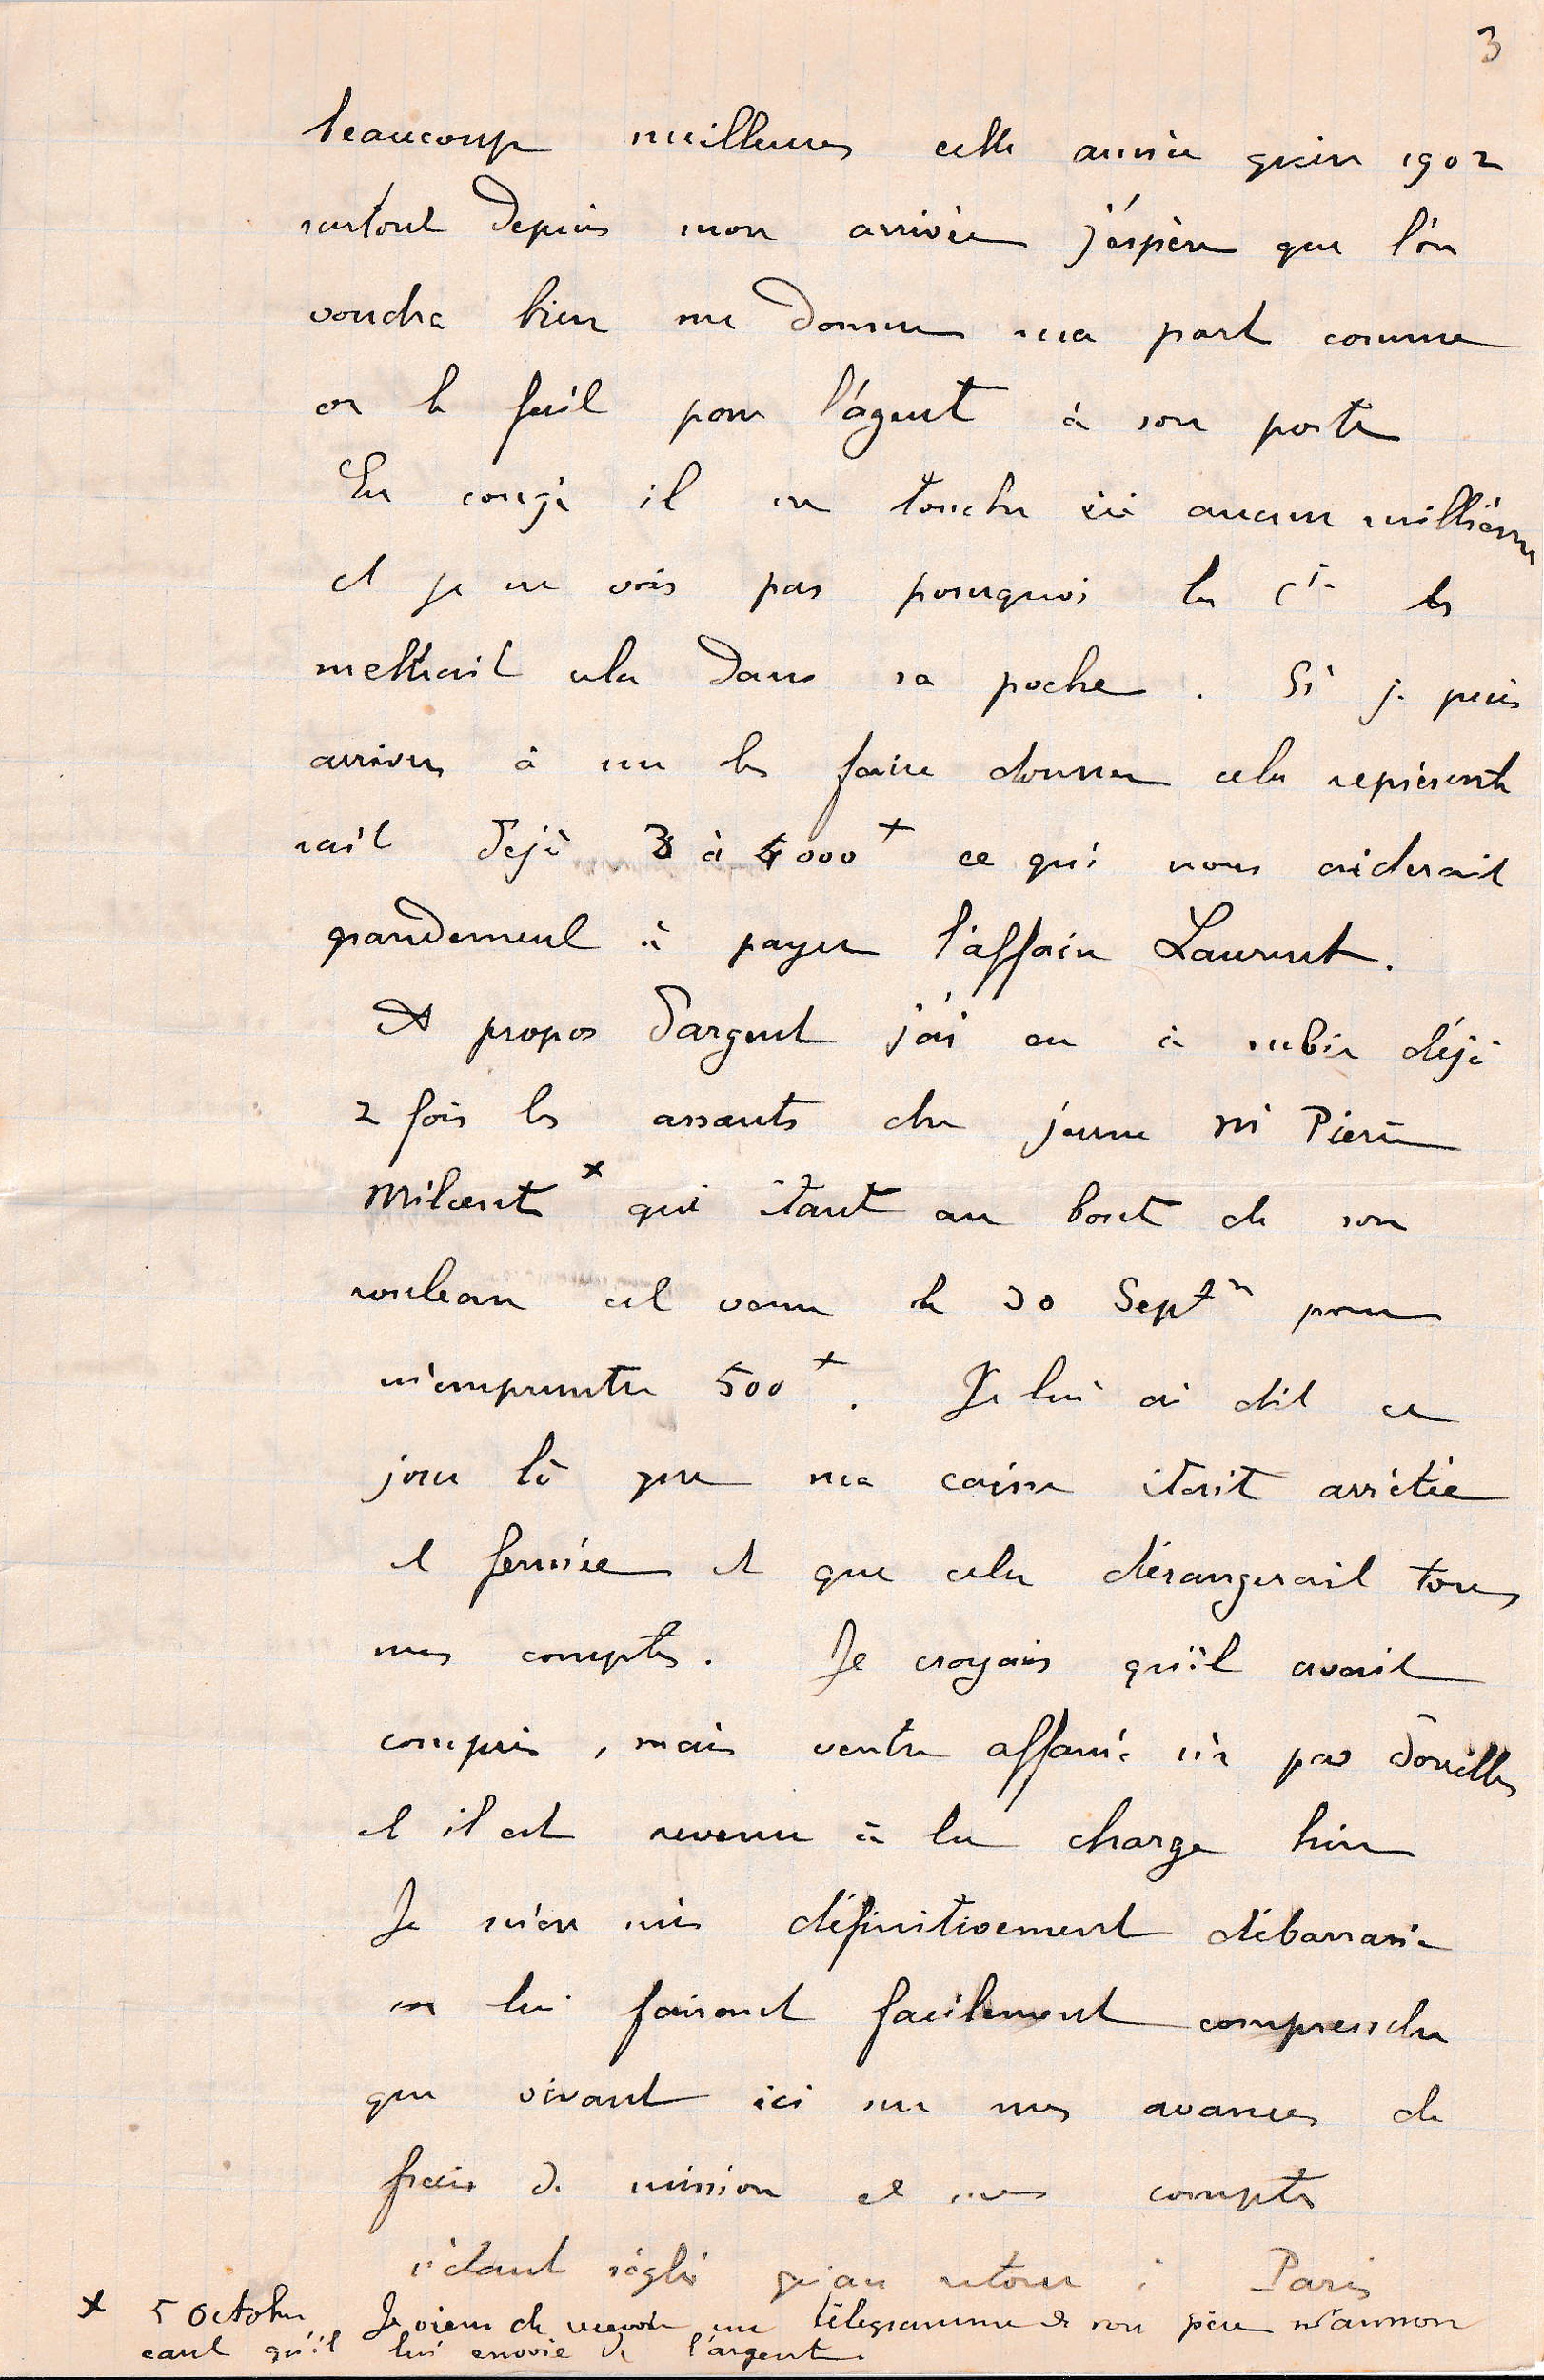 3
beaucoup meilleures cette année qu'en 1902
surtout depuis mon arrivée j'éspère que l'on
voudra bien me donner ma part comme
on le fait pour l'agent à son poste
En congé il ne touche ici aucun millième
et je ne vois pas pourquoi la Cie les
mettrait cela dans sa poche. Si je puis
arriver à me les faire donner cela représente
rait déjà 3 à 4000 + ce qui nous aiderait
grandement à payer l'affaire Laurent.
A propos d'argent j'ai eu à subir déjà
2 fois les assauts du jeune Mr Pierre
Milcent x qui étant au bout de son
rouleau est venu le 30 Septre pour
m'emprunter 500 +. Je lui ai dit ce
jour là que ma caisse était arrétée
et fermée et que cela dérangerait tous
mes comptes. Je croyais qu'il avait
compris, mais ventre affamé n'a pas d'oreilles
et il est revenu à la charge hier
Je m'en suis définitivement débarrassé
en lui faisant facilement comprendre
que vivant ici sur mes avances de
frais de mission et mes comptes
n'étant réglés qu'au retour à Paris
x 5 Octobre Je viens de recevoir un télégramme de son père m'annon
cant qu'il lui envoie de l'argent.